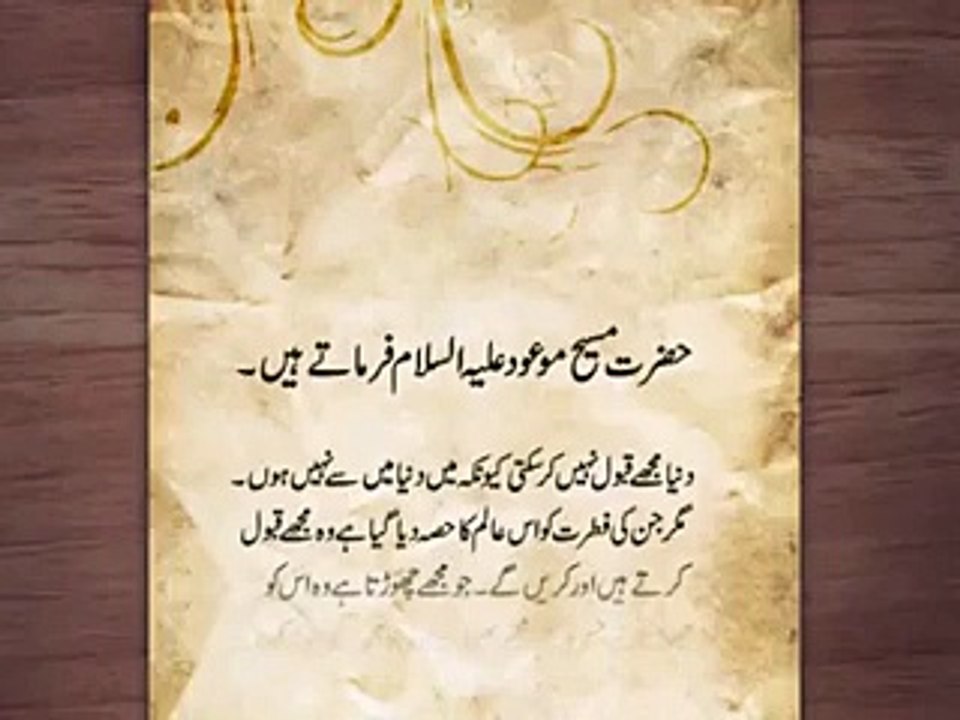 حضرت مسیح موعود علیہ السلام فرماتے ہیں۔
دنیا مجھے قبول نہیں کرسکتی کیونکہ میں دنیا میں سے نہیں ہوں۔
مگر جن کی فطرت کو اس عالم کا حصہ دیا گیا ہے وہ مجھے قبول
کرتے ہیں اور کریں گے۔ جو مجھے چھوڑتا ہے وہ اس کو